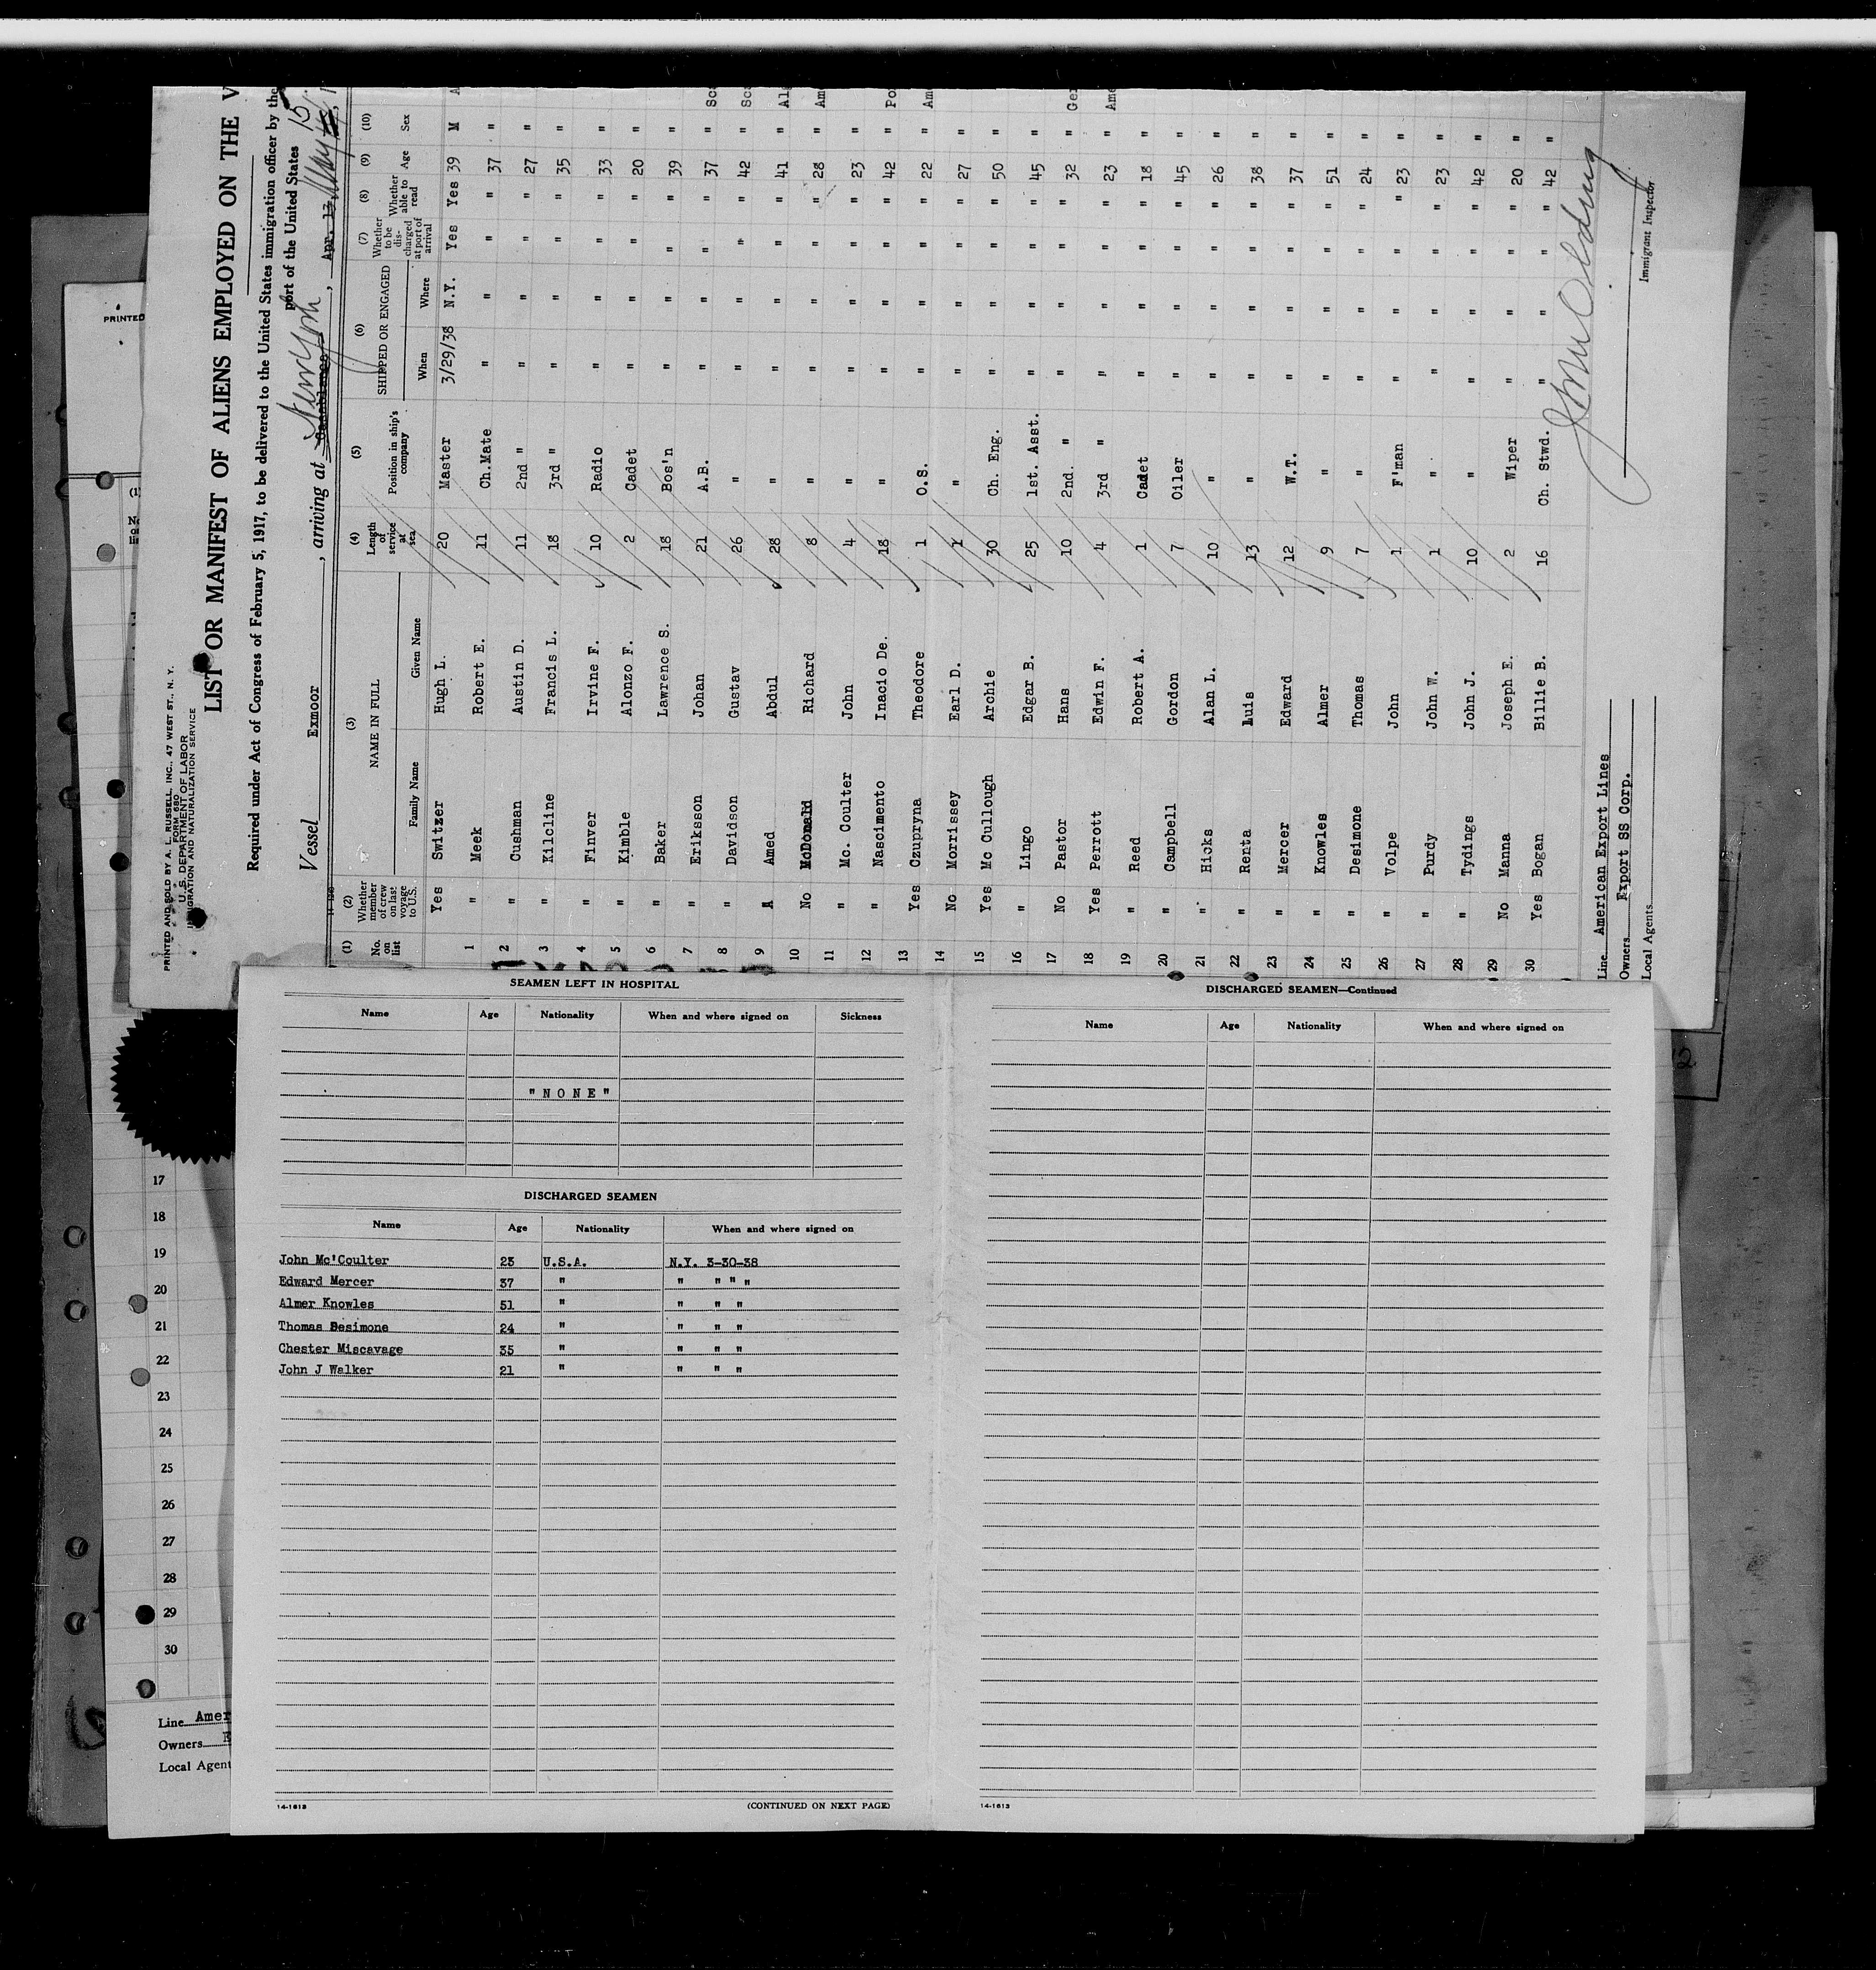 PRINTED AND SOLD BY A. L. RUSSELL, INC., 47 WEST ST., N. Y.
FORM 680
U. S. DEPARTMENT OF LABOR
IMMIGRATION AND NATURALIZATION SERVICE
LIST OR MANIFEST OF ALIENS EMPLOYED ON THE V
Required under Act of Congress of February 5, 1917, to be delivered to the United States immigration officer by the
port of the United States
Vessel Exmoor , arriving at New York , Apr. 13 May 15
(1) (2) (3) (4) (5) (6) (7) (8) (9) (10)
No. on list Whether member of crew on last voyage to U.S. NAME IN FULL Length of service at sea Position in ship's company SHIPPED OR ENGAGED Whether to be discharged at port of arrival Whether able to read Age Sex
Family Name Given Name When Where
1 Yes Switzer Hugh L. 20 Master 3/29/38 N.Y. Yes Yes 39 M A
2 " Meek Robert E. 11 Ch.Mate " " " " 37 "
3 " Cushman Austin D. 11 2nd " " " " " 27 "
4 " Kilcline Francis L. 18 3rd " " " " " 35 "
5 " Finver Irvine F. 10 Radio " " " " 33 "
6 " Kimble Alonzo F. 2 Cadet " " " " 20 "
7 " Baker Lawrence S. 18 Bos'n " " " " 39 "
8 " Eriksson Johan 21 A.B. " " " " 37 " Sc
9 " Davidson Gustav 26 " " " " " 42 " Sc
10 Amed Abdul 28 " " " " " 41 " Al
11 No McDonald Richard 8 " " " " " 28 " Am
12 " Mc. Coulter John 4 " " " " " 23 "
13 " Nascimento Inacio De. 18 " " " " " 42 " Po
14 Yes Czupryna Theodore 1 O.S. " " " " 22 " Am
15 No Morrissey Earl D. 1 " " " " " 27 "
16 Yes Mc Cullough Archie 30 Ch. Eng. " " " " 50 "
17 " Lingo Edgar B. 25 1st. Asst. " " " " 45 "
18 No Pastor Hans 10 2nd. " " " " " 32 " Ge
19 Yes Perrott Edwin F. 4 3rd " " " " " 23 " Ame
20 " Reed Robert A. 1 Cadet " " " " 18 "
21 " Campbell Gordon 7 Oiler " " " " 45 "
22 " Hicks Alan L. 10 " " " " " 26 "
23 " Renta Luis 13 " " " " " 38 "
24 " Mercer Edward 12 W.T. " " " " 37 "
25 " Knowles Almer 9 " " " " " 51 "
26 " Desimone Thomas 7 " " " " " 24 "
27 " Volpe John 1 F'man " " " " 23 "
28 " Purdy John W. 1 " " " " " 23 "
29 " Tydings John J. 10 " " " " " 42 "
30 No Manna Joseph E. 2 Wiper " " " " 20 "
Yes Bogan Billie B. 16 Ch. Stwd. " " " " 42 "
Line American Export Lines
Owners Export SS Corp.
Local Agents
Immigrant Inspector
PRINTED
SEAMEN LEFT IN HOSPITAL
Name Age Nationality When and where signed on Sickness
"NONE"
DISCHARGED SEAMEN
Name Age Nationality When and where signed on
John Mc'Coulter 23 U.S.A. N.Y. 3-30-38
Edward Mercer 37 " " " " "
Almer Knowles 51 " " " "
Thomas Desimone 24 " " " "
Chester Miscavage 35 " " " "
John J Walker 21 " " " "
14-1613 (CONTINUED ON NEXT PAGE)
DISCHARGED SEAMEN—Continued
Name Age Nationality When and where signed on
14-1613
17
18
19
20
21
22
23
24
25
26
27
28
29
30
Line Amer
Owners E
Local Agent